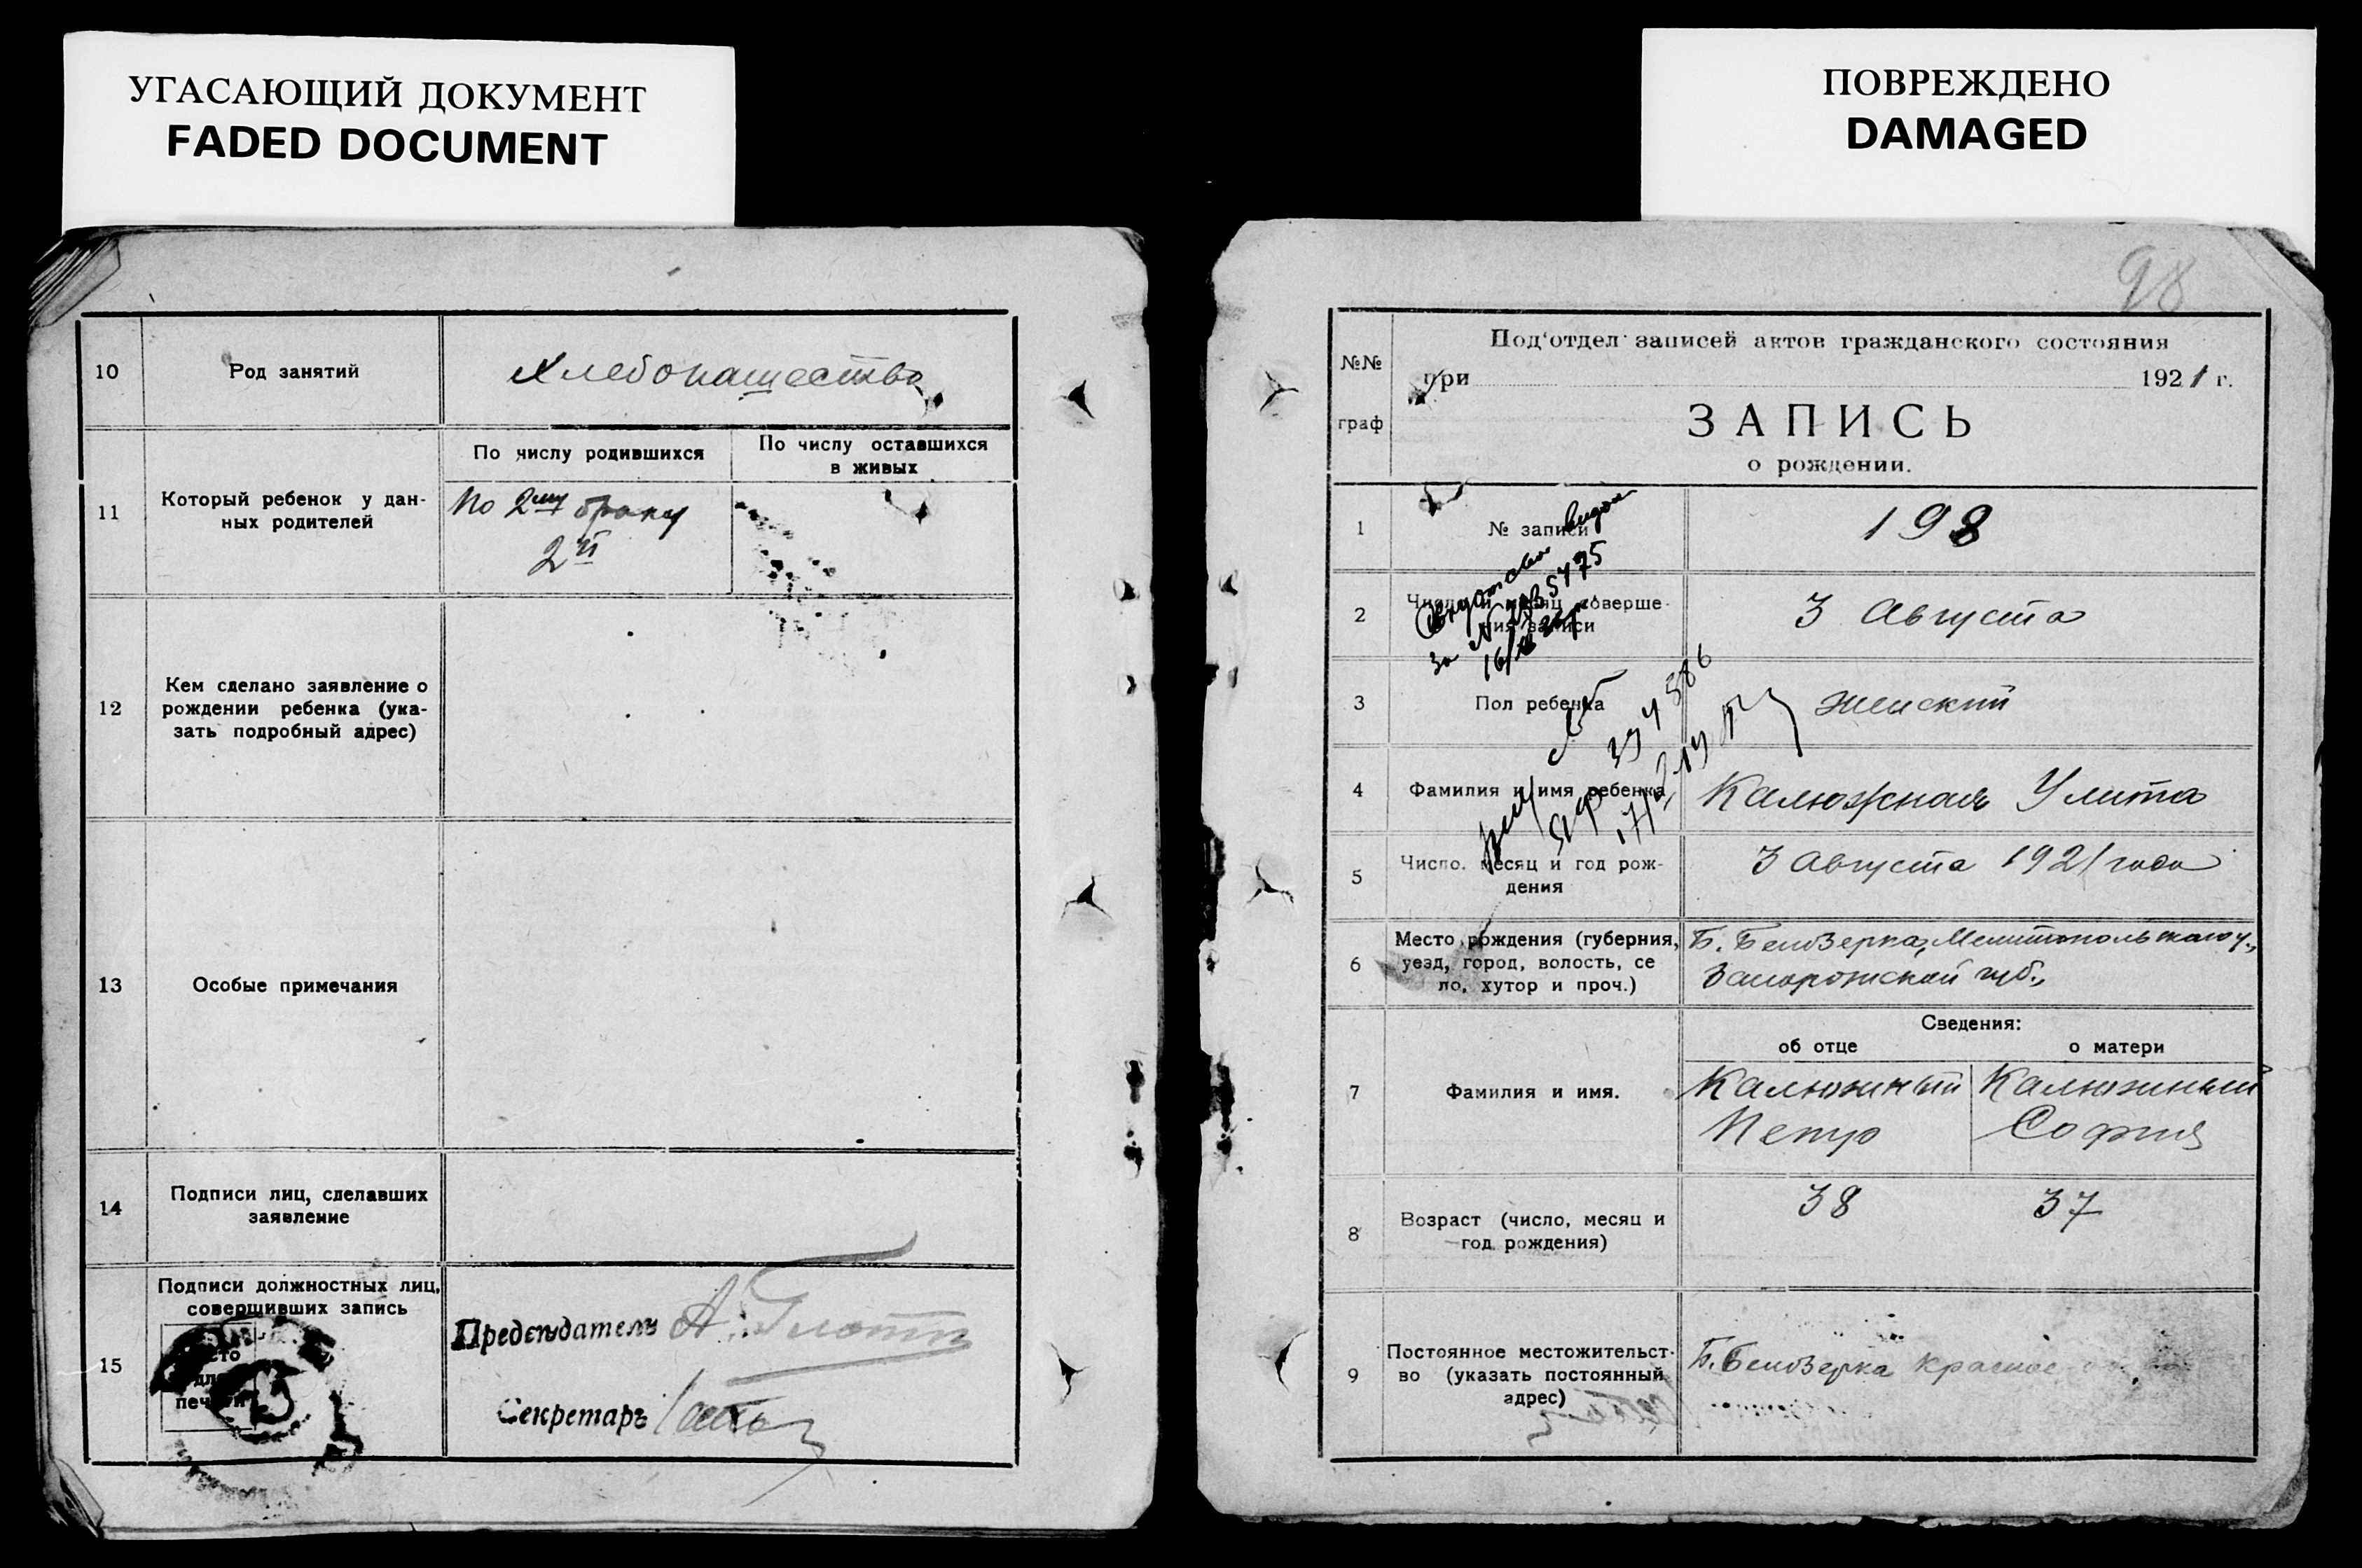 УГАСАЮЩИЙ ДОКУМЕНТ
FADED DOCUMENT
10
Род занятий
Хлебопашество
11
Который ребенок у дан-
ных родителей
По числу родившихся
По числу оставшихся
в живых
По 2му браку
2й
12
Кем сделано заявление о
рождении ребенка (ука-
зать подробный адрес)
13
Особые примечания
14
Подписи лиц, сделавших
заявление
15
Подписи должностных лиц,
совершивших запись
Место
для
печати
Председатель
Секретарь
ПОВРЕЖДЕНО
DAMAGED
98
№№
граф
Под'отдел записей актов гражданского состояния
при 1921 г.
ЗАПИСЬ
о рождении.
1
№ записи
198
2
Число и месяц соверше-
ния записи
3 Августа
3
Пол ребенка
женский
4
Фамилия и имя ребенка
Калюжная Улита
5
Число. месяц и год рож-
дения
3 Августа 1921 года
6
Место рождения (губерния,
уезд, город, волость, се
ло, хутор и проч.)
Б. Белозерка, Мелитопольского у.,
Запорожской губ.,
7
Фамилия и имя.
Сведения:
об отце
о матери
Калюжный
Петр
Калюжный
София
8
Возраст (число, месяц и
год рождения)
38
37
9
Постоянное местожительст-
во (указать постоянный
адрес)
Б. Белозерка